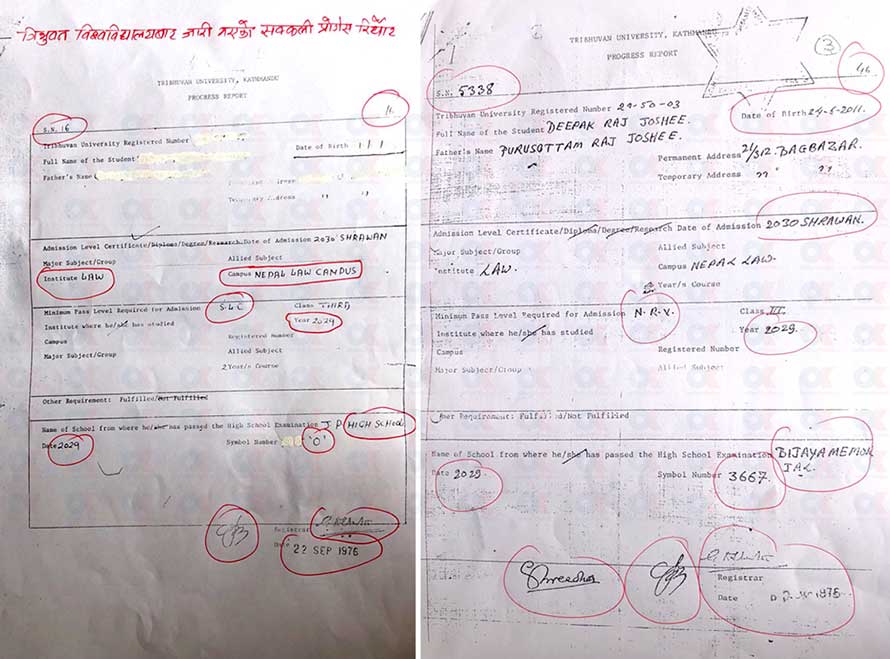 त्रिभुवन विश्वविद्यालयबाट जारी गरेको सक्कली प्रोग्रेस रिपोर्ट
TRIBHUVAN UNIVERSITY, KATHMANDU
PROGRESS REPORT
11.
S.N. 16
Tribhuvan University Registered Number
Full Name of the Student
Date of Birth
Father's Name
Temporary Address " "
Admission Level Certificate/Diploma/Degree/Research Date of Admission 2030 SHRAWAN
Major Subject/Group Allied Subject
Institute LAW Campus NEPAL LAW CAMPUS
Minimum Pass Level Required for Admission S.L.C Class THIRD
Institute where he/she has studied Year 2029
Campus Registered Number
Major Subject/Group Allied Subject
2 Year/s Course
Other Requirement: Fulfilled/Not Fulfilled
Name of School from where he/she has passed the High School Examination J P HIGH SCHOOL
Date 2029 Symbol Number '0'
Registrar
Date 22 SEP 1976
TRIBHUVAN UNIVERSITY, KATHMANDU
PROGRESS REPORT
3
46
S.N. 5338
Tribhuvan University Registered Number 29-50-03
Date of Birth 24-6-2011.
Full Name of the Student DEEPAK RAJ JOSHEE.
Father's Name PURUSOTTAM RAJ JOSHEE.
Permanent Address 21/312 BAGBAZAR.
Temporary Address " "
Admission Level Certificate/Diploma/Degree/Research Date of Admission 2030 SHRAWAN.
Major Subject/Group Allied Subject
Institute LAW. Campus NEPAL LAW.
2 Year/s Course
Minimum Pass Level Required for Admission N.R.V. Class III
Institute where he/she has studied Year 2029.
Campus Registered Number
Major Subject/Group Allied Subject
Other Requirement: Fulfilled/Not Fulfilled
Name of School from where he/she has passed the High School Examination BIJAYA MEMORIAL.
Date 2029. Symbol Number 3667.
Shreedhar
Registrar
Date 1976